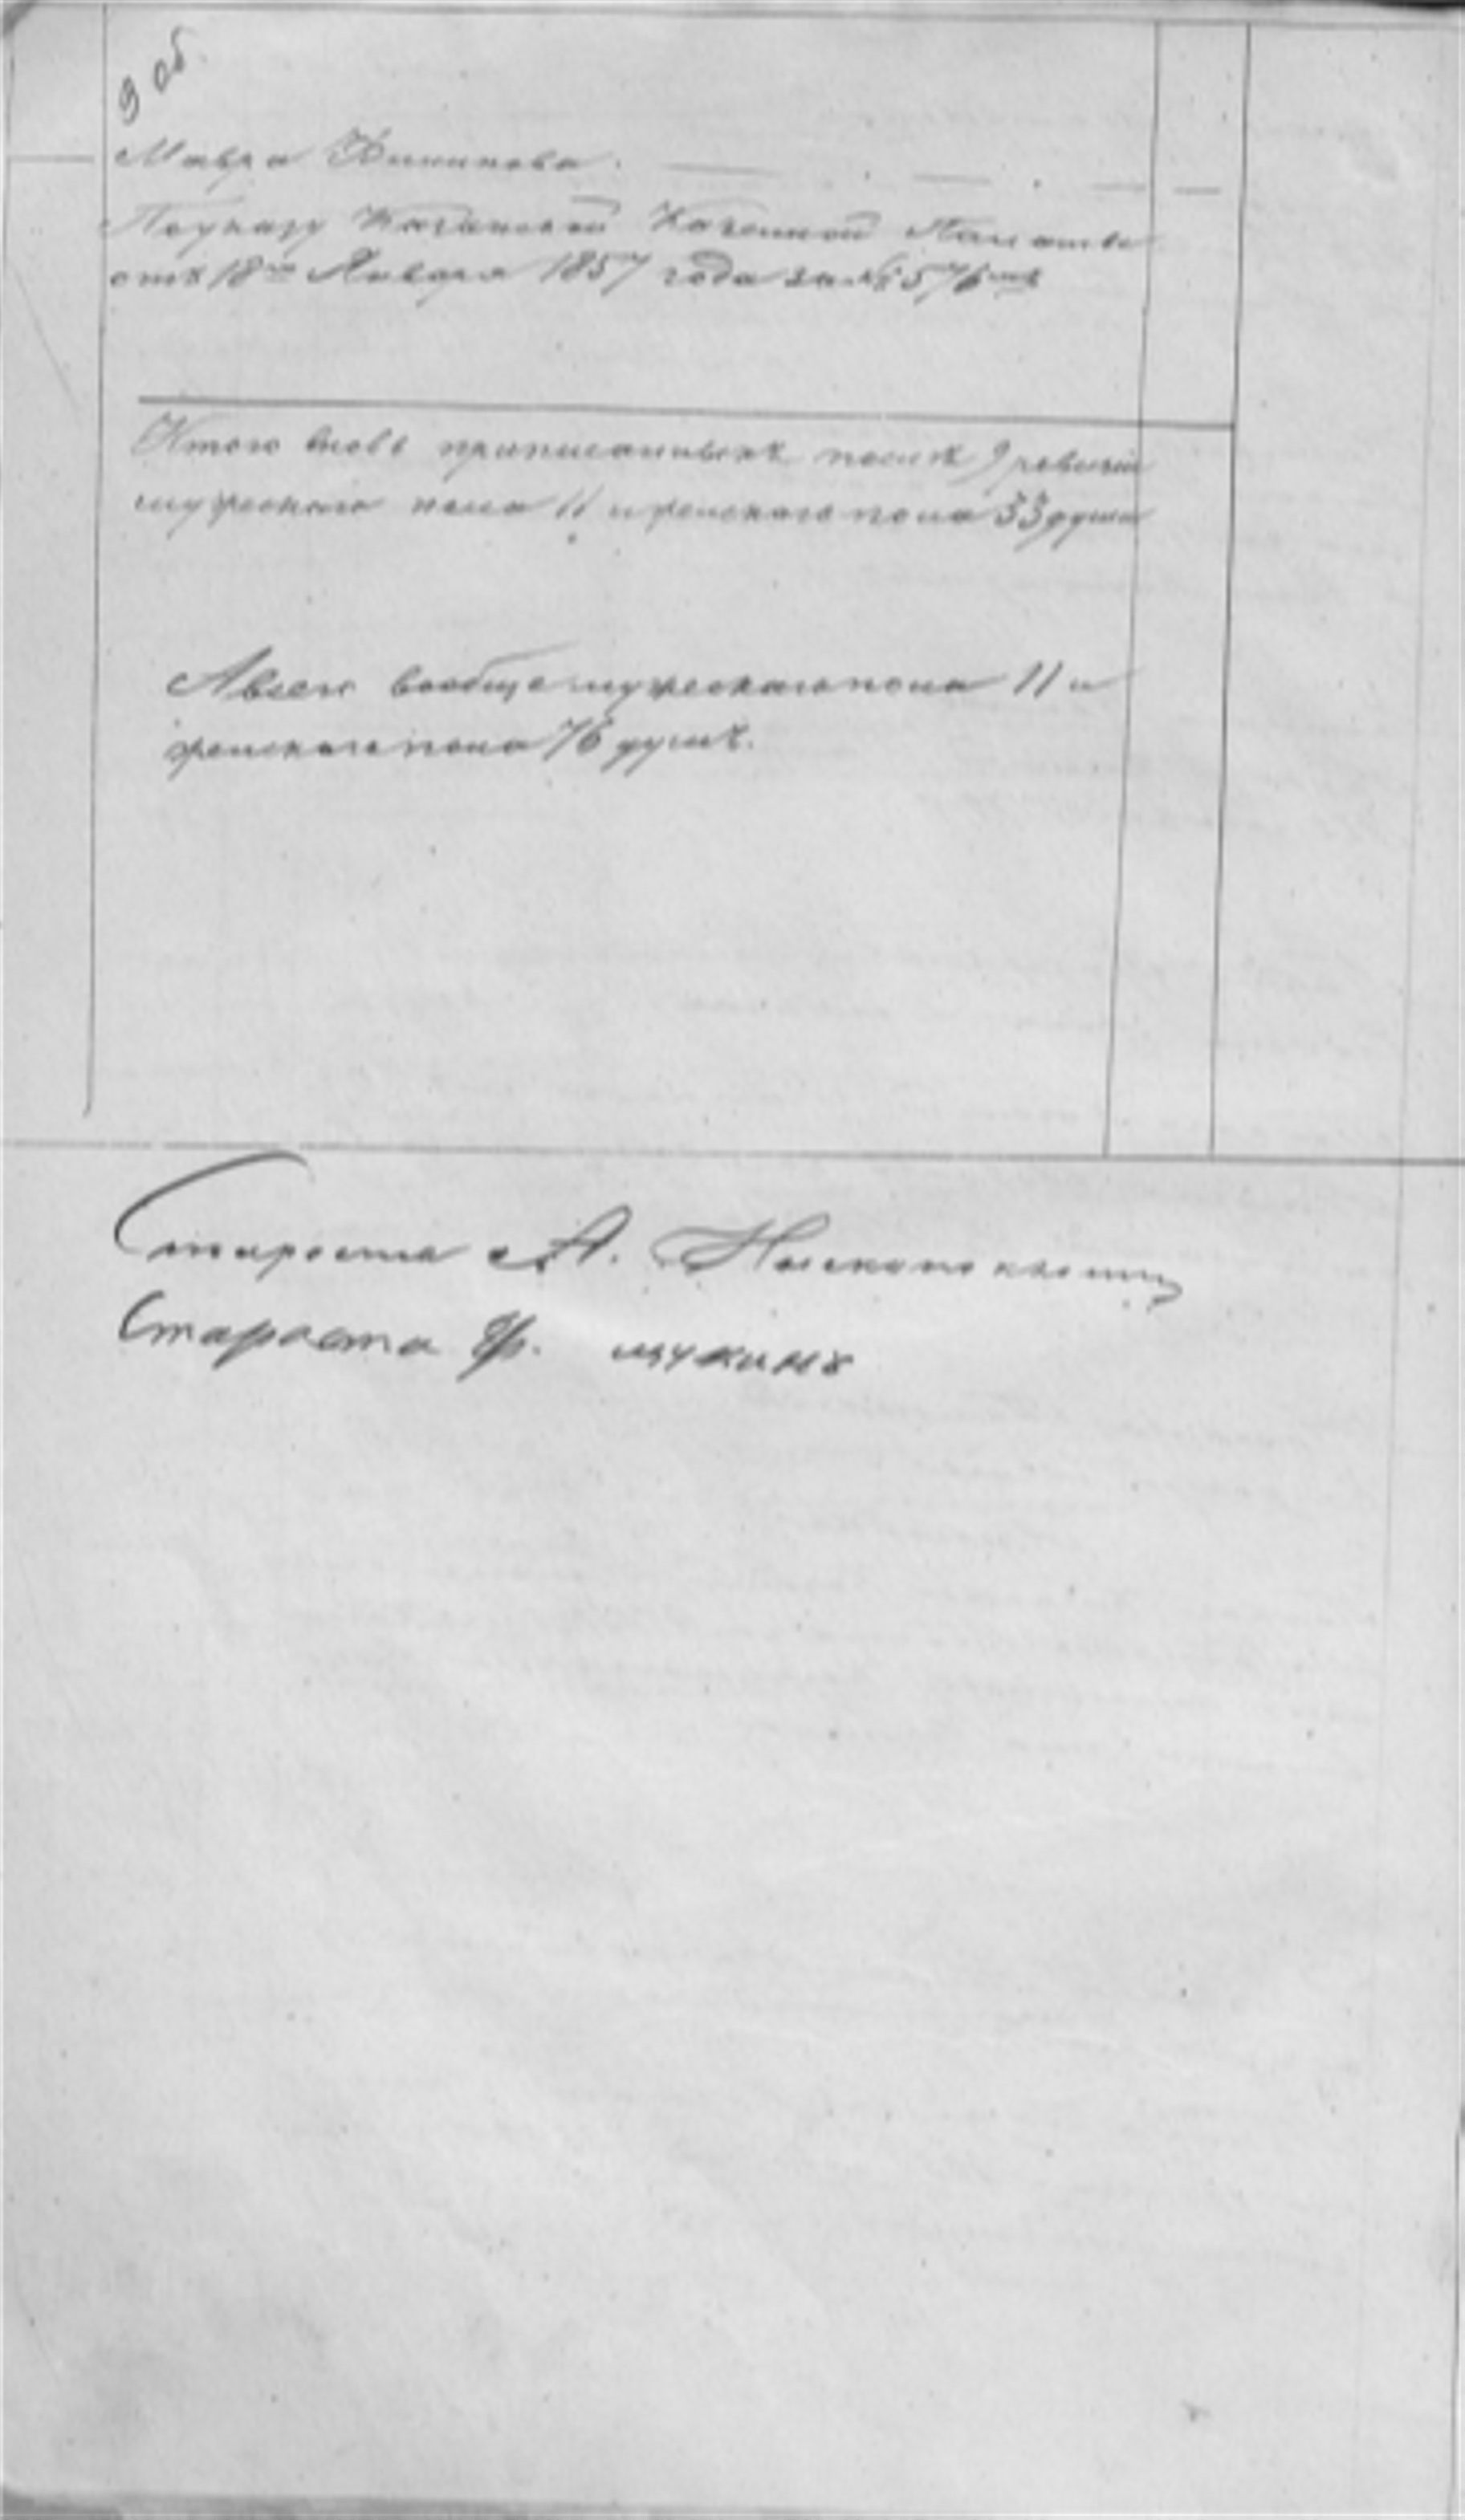 9 об.
Мавра
По указу Казанской Казенной Палаты
отъ 18го Января 1857 года за № 576мъ
Итого вновь приписанныхъ послѣ 9 ревизіи
мужескаго пола 11 и женскаго пола 33 души
А всего вообще мужескаго пола 11 и
женскаго пола 76 душъ.
Староста А.
Староста Ф. щукинъ